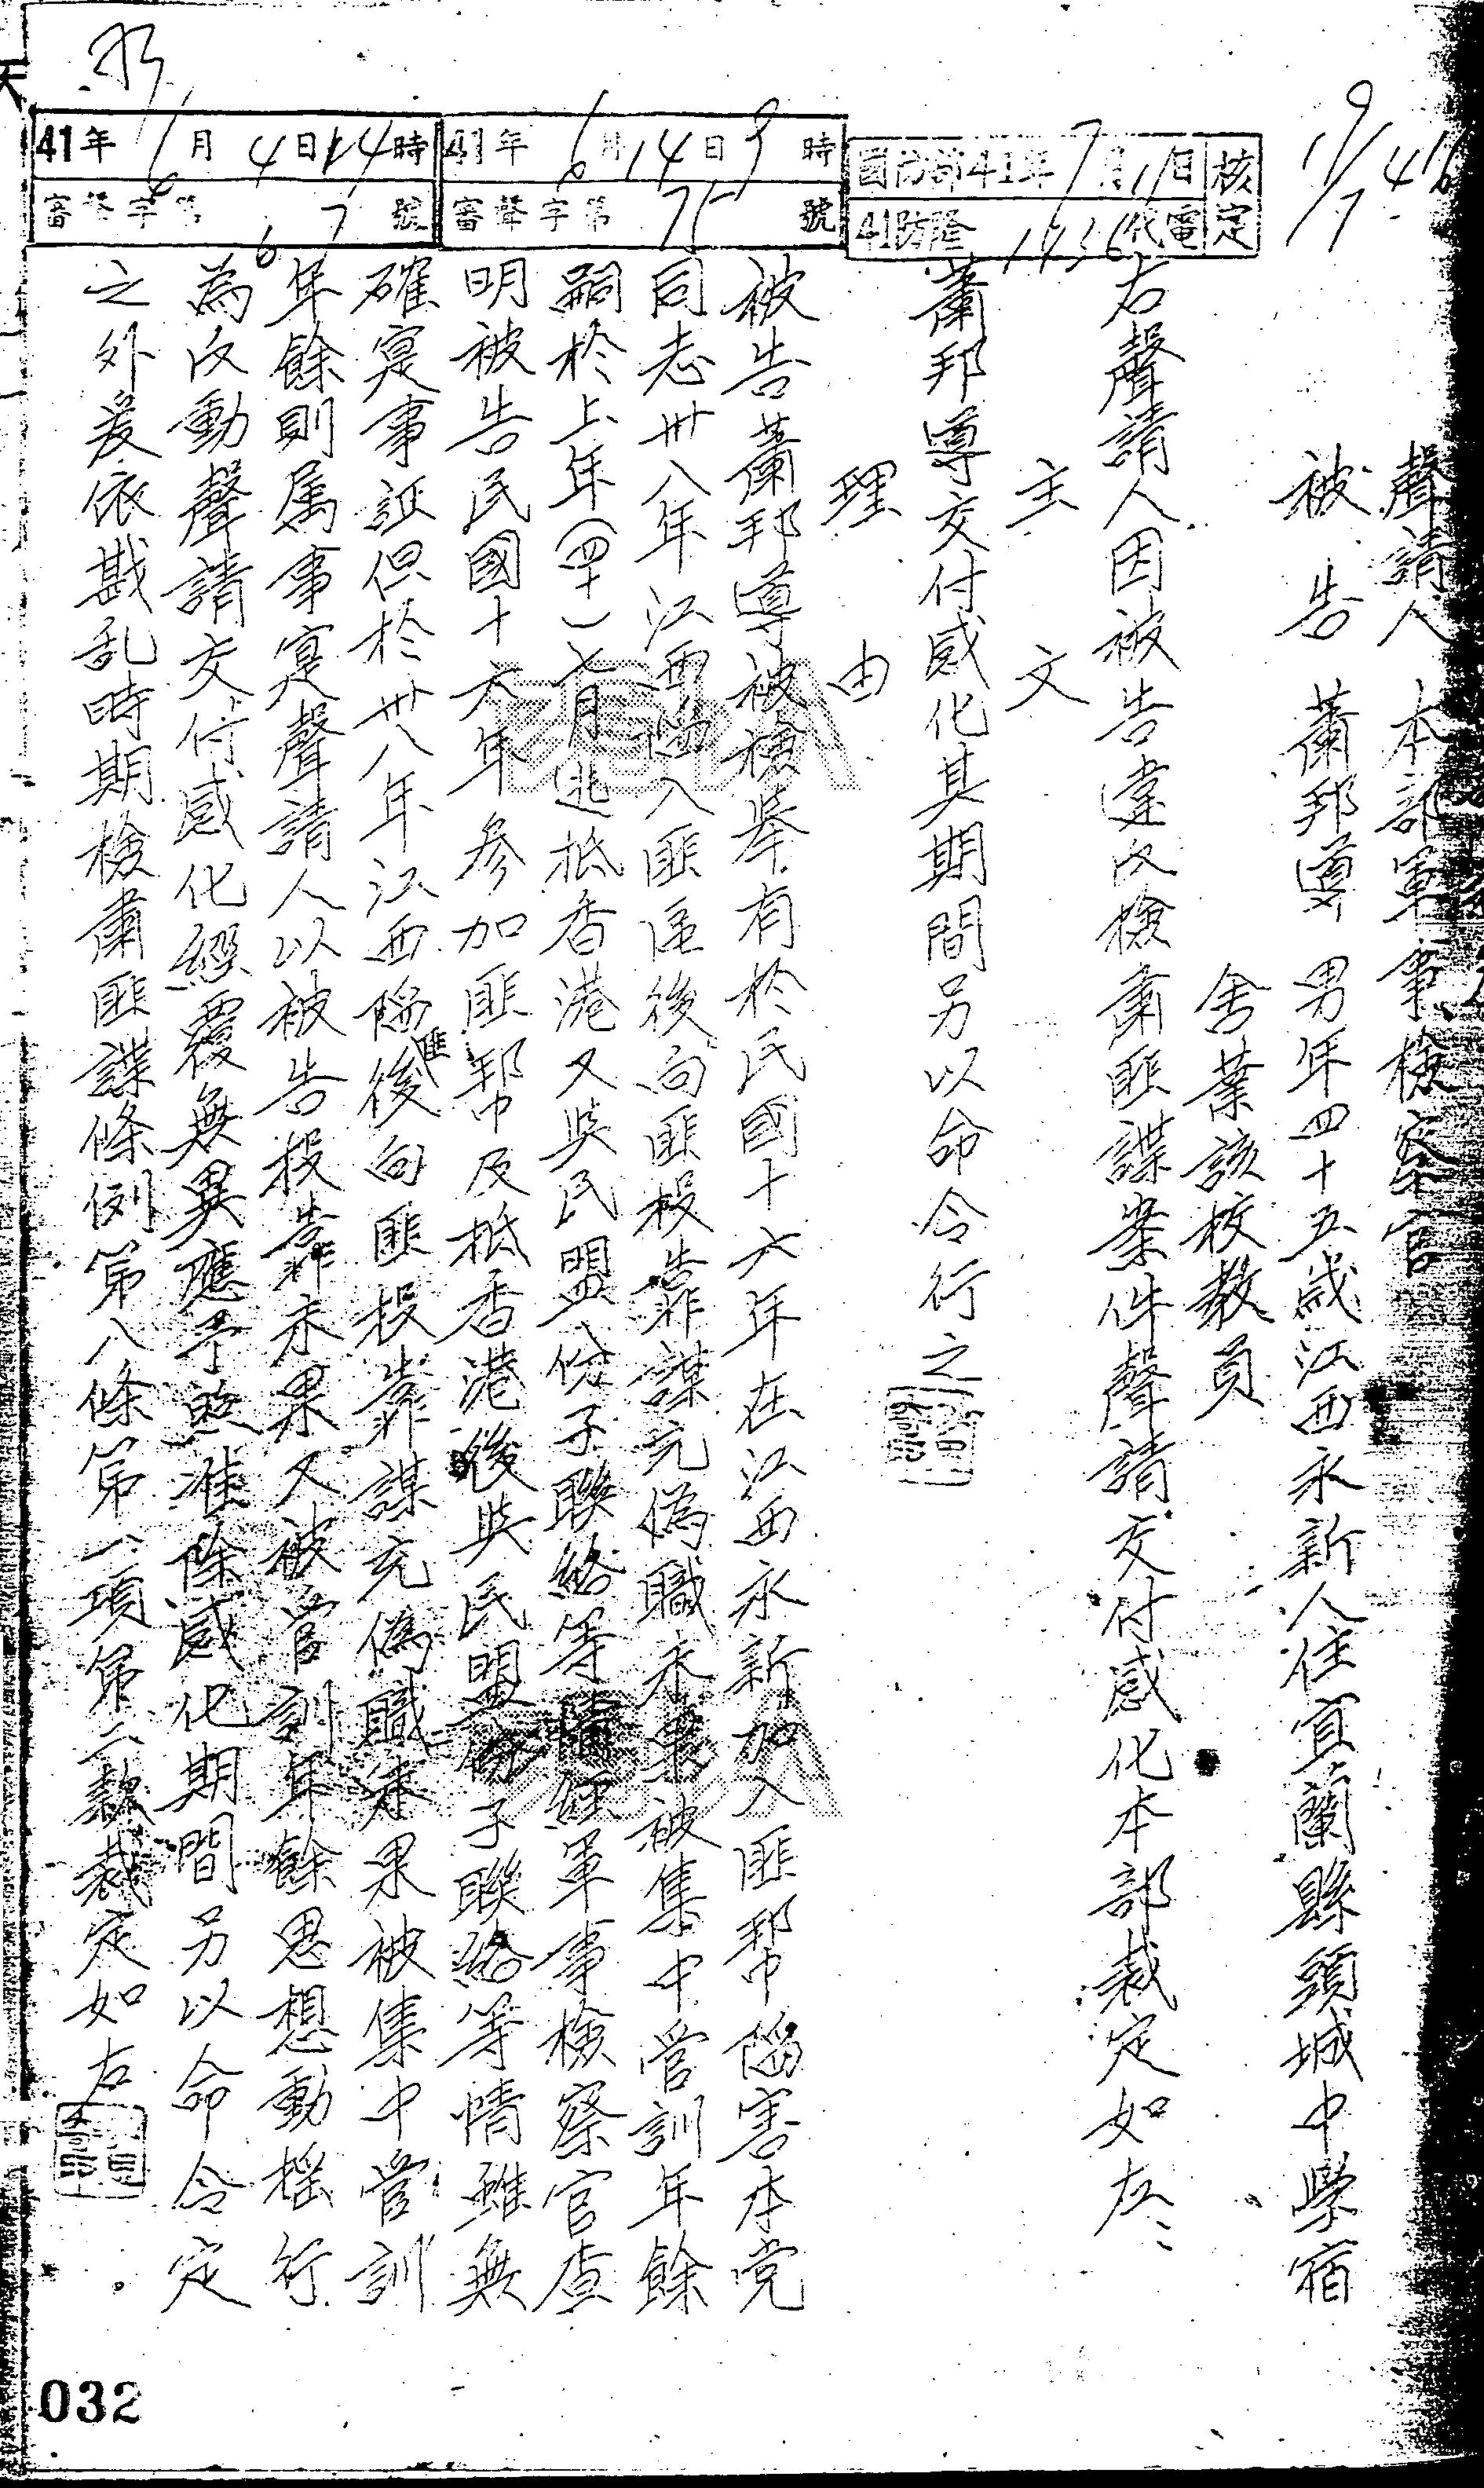 聲請人　本部軍事檢察官
被告　蕭邦噂　男年四十五歲江西永新人住宜蘭縣頭城中學宿
舍業該校教員
右聲請人因被告違反檢肅匪諜案件聲請交付感化本部裁定如左：
主文
蕭邦噂交付感化其期間另以命令行之
理由
被告蕭邦噂被檢舉有於民國十六年在江西永新加入匪幫陷害本党
同志卅八年江西淪入匪區後向匪投靠謀充偽職未果被集中管訓年餘
嗣於上年(四十)七月逃抵香港又與民盟份子聯絡等情經軍事檢察官查
明被告民國十六年參加匪幫及抵香港後與民盟份子聯絡等情雖無
確寔事証但於卅八年江西陷匪後向匪投靠謀充偽職未果被集中管訓
年餘則属事寔聲請人以被告投靠未果又被管訓年餘思想動搖行
為反動聲請交付感化經覆無異應予照准除感化期間另以命令定
之外爰依戡乱時期檢肅匪諜條例第八條第一項第二款裁定如左
41年 月4日14時
審聲字第 67號
41年6月14日9時
審聲字第75號
國防部41年7月11日核定
41防隆1736代電
032